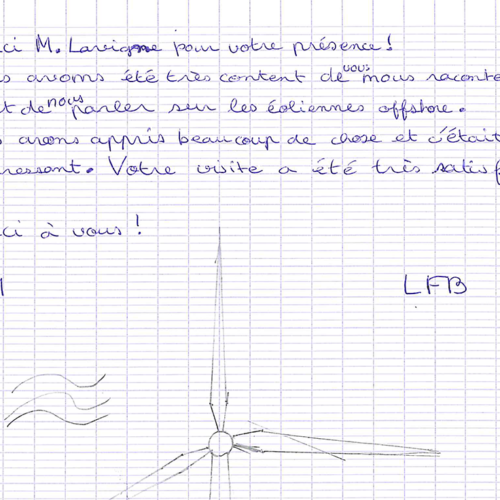 ci M. Lavigne pour votre présence !
s avons été très content de vous nous raconte
t de nous parler sur les éoliennes offshore.
s avons appris beaucoup de chose et c'était
ressant. Votre visite a été très satisf
ci à vous !
LFB